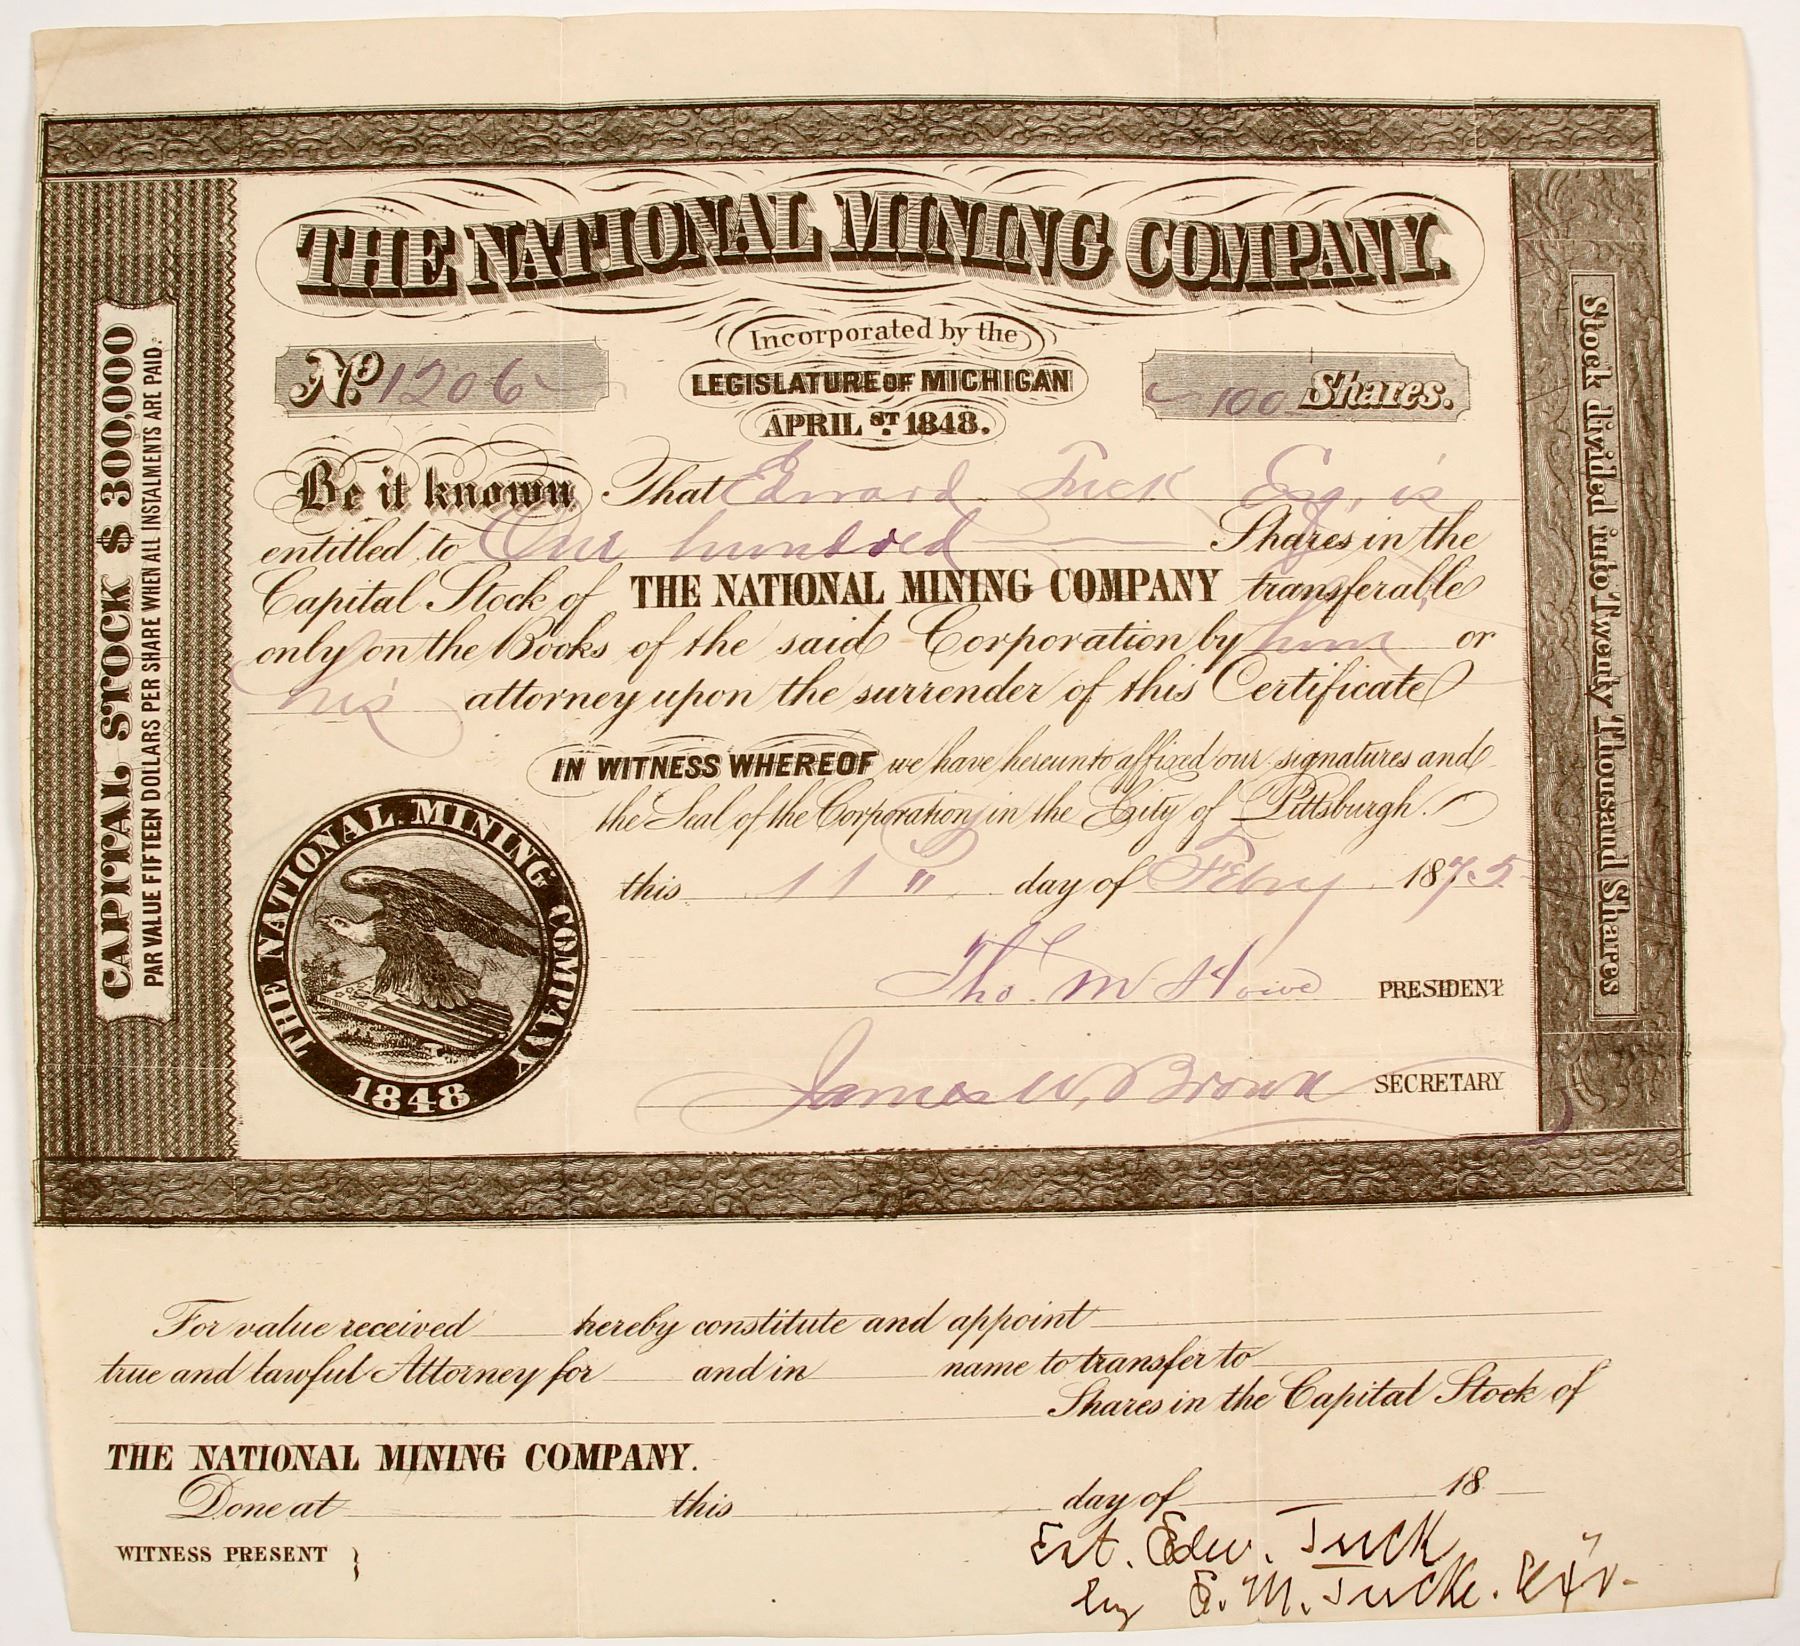 THE NATIONAL MINING COMPANY.
Incorporated by the
No. 1206
LEGISLATURE OF MICHIGAN
100 Shares.
APRIL ST. 1848.
Be it known That Edward Tuck Esq, is
entitled to One hundred Shares in the
Capital Stock of THE NATIONAL MINING COMPANY transferable
only on the Books of the said Corporation by him or
his attorney upon the surrender of this Certificate
IN WITNESS WHEREOF we have hereunto affixed our signatures and
the Seal of the Corporation in the City of Pittsburgh.
this 11" day of Feby 1875
Tho. M Howe PRESIDENT
James W. Brown SECRETARY
THE NATIONAL MINING COMPANY
1848
CAPITAL STOCK $ 300,000
PAR VALUE FIFTEEN DOLLARS PER SHARE WHEN ALL INSTALMENTS ARE PAID.
Stock divided into Twenty Thousand Shares
For value received hereby constitute and appoint
true and lawful Attorney for and in name to transfer to
Shares in the Capital Stock of
THE NATIONAL MINING COMPANY.
Done at this day of 18
WITNESS PRESENT }
Est. Edw. Tuck
by E. M. Tucke. Exr.